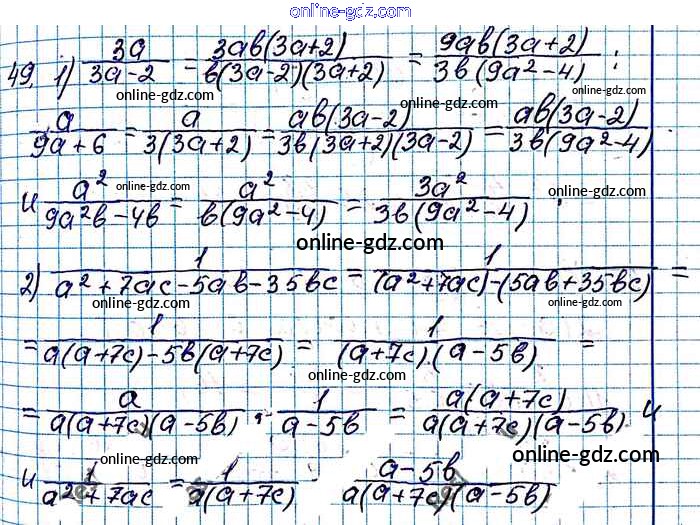 online-gdz.com
49. 1) 3a/(3a-2) = 3ab(3a+2)/(b(3a-2)(3a+2)) = 9ab(3a+2)/(3b(9a²-4)) ;
online-gdz.com online-gdz.com
a/(9a+6) = a/(3(3a+2)) = ab(3a-2)/(3b(3a+2)(3a-2)) = ab(3a-2)/(3b(9a²-4))
online-gdz.com online-gdz.com
и a²/(9a²b-4b) = a²/(b(9a²-4)) = 3a²/(3b(9a²-4)) .
online-gdz.com
2) 1/(a²+7ac-5ab-35bc) = 1/((a²+7ac)-(5ab+35bc)) =
online-gdz.com online-gdz.com
= 1/(a(a+7c)-5b(a+7c)) = 1/((a+7c)(a-5b)) =
online-gdz.com
= a/(a(a+7c)(a-5b)) ; 1/(a-5b) = a(a+7c)/(a(a+7c)(a-5b)) и
online-gdz.com online-gdz.com
и 1/(a²+7ac) = 1/(a(a+7c)) - (a-5b)/(a(a+7c)(a-5b))
online-gdz.com